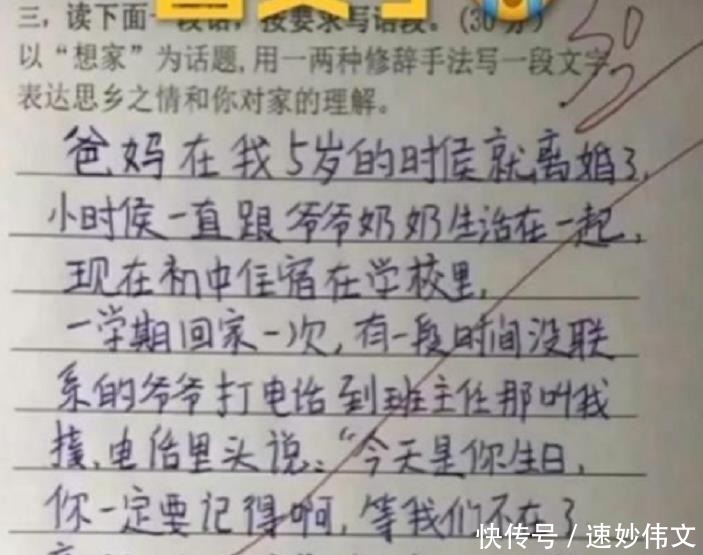 三，读下面一段话，按要求写话段。(30分)
以“想家”为话题,用一两种修辞手法写一段文字
表达思乡之情和你对家的理解。
爸妈在我5岁的时候就离婚了,
小时侯一直跟爷爷奶奶生活在一起,
现在初中住宿在学校里,
一学期回家一次,有一段时间没联
系的爷爷打电话到班主任那叫我
接,电话里头说:“今天是你生日,
你一定要记得啊,等我们不在了
快传号／速妙伟文